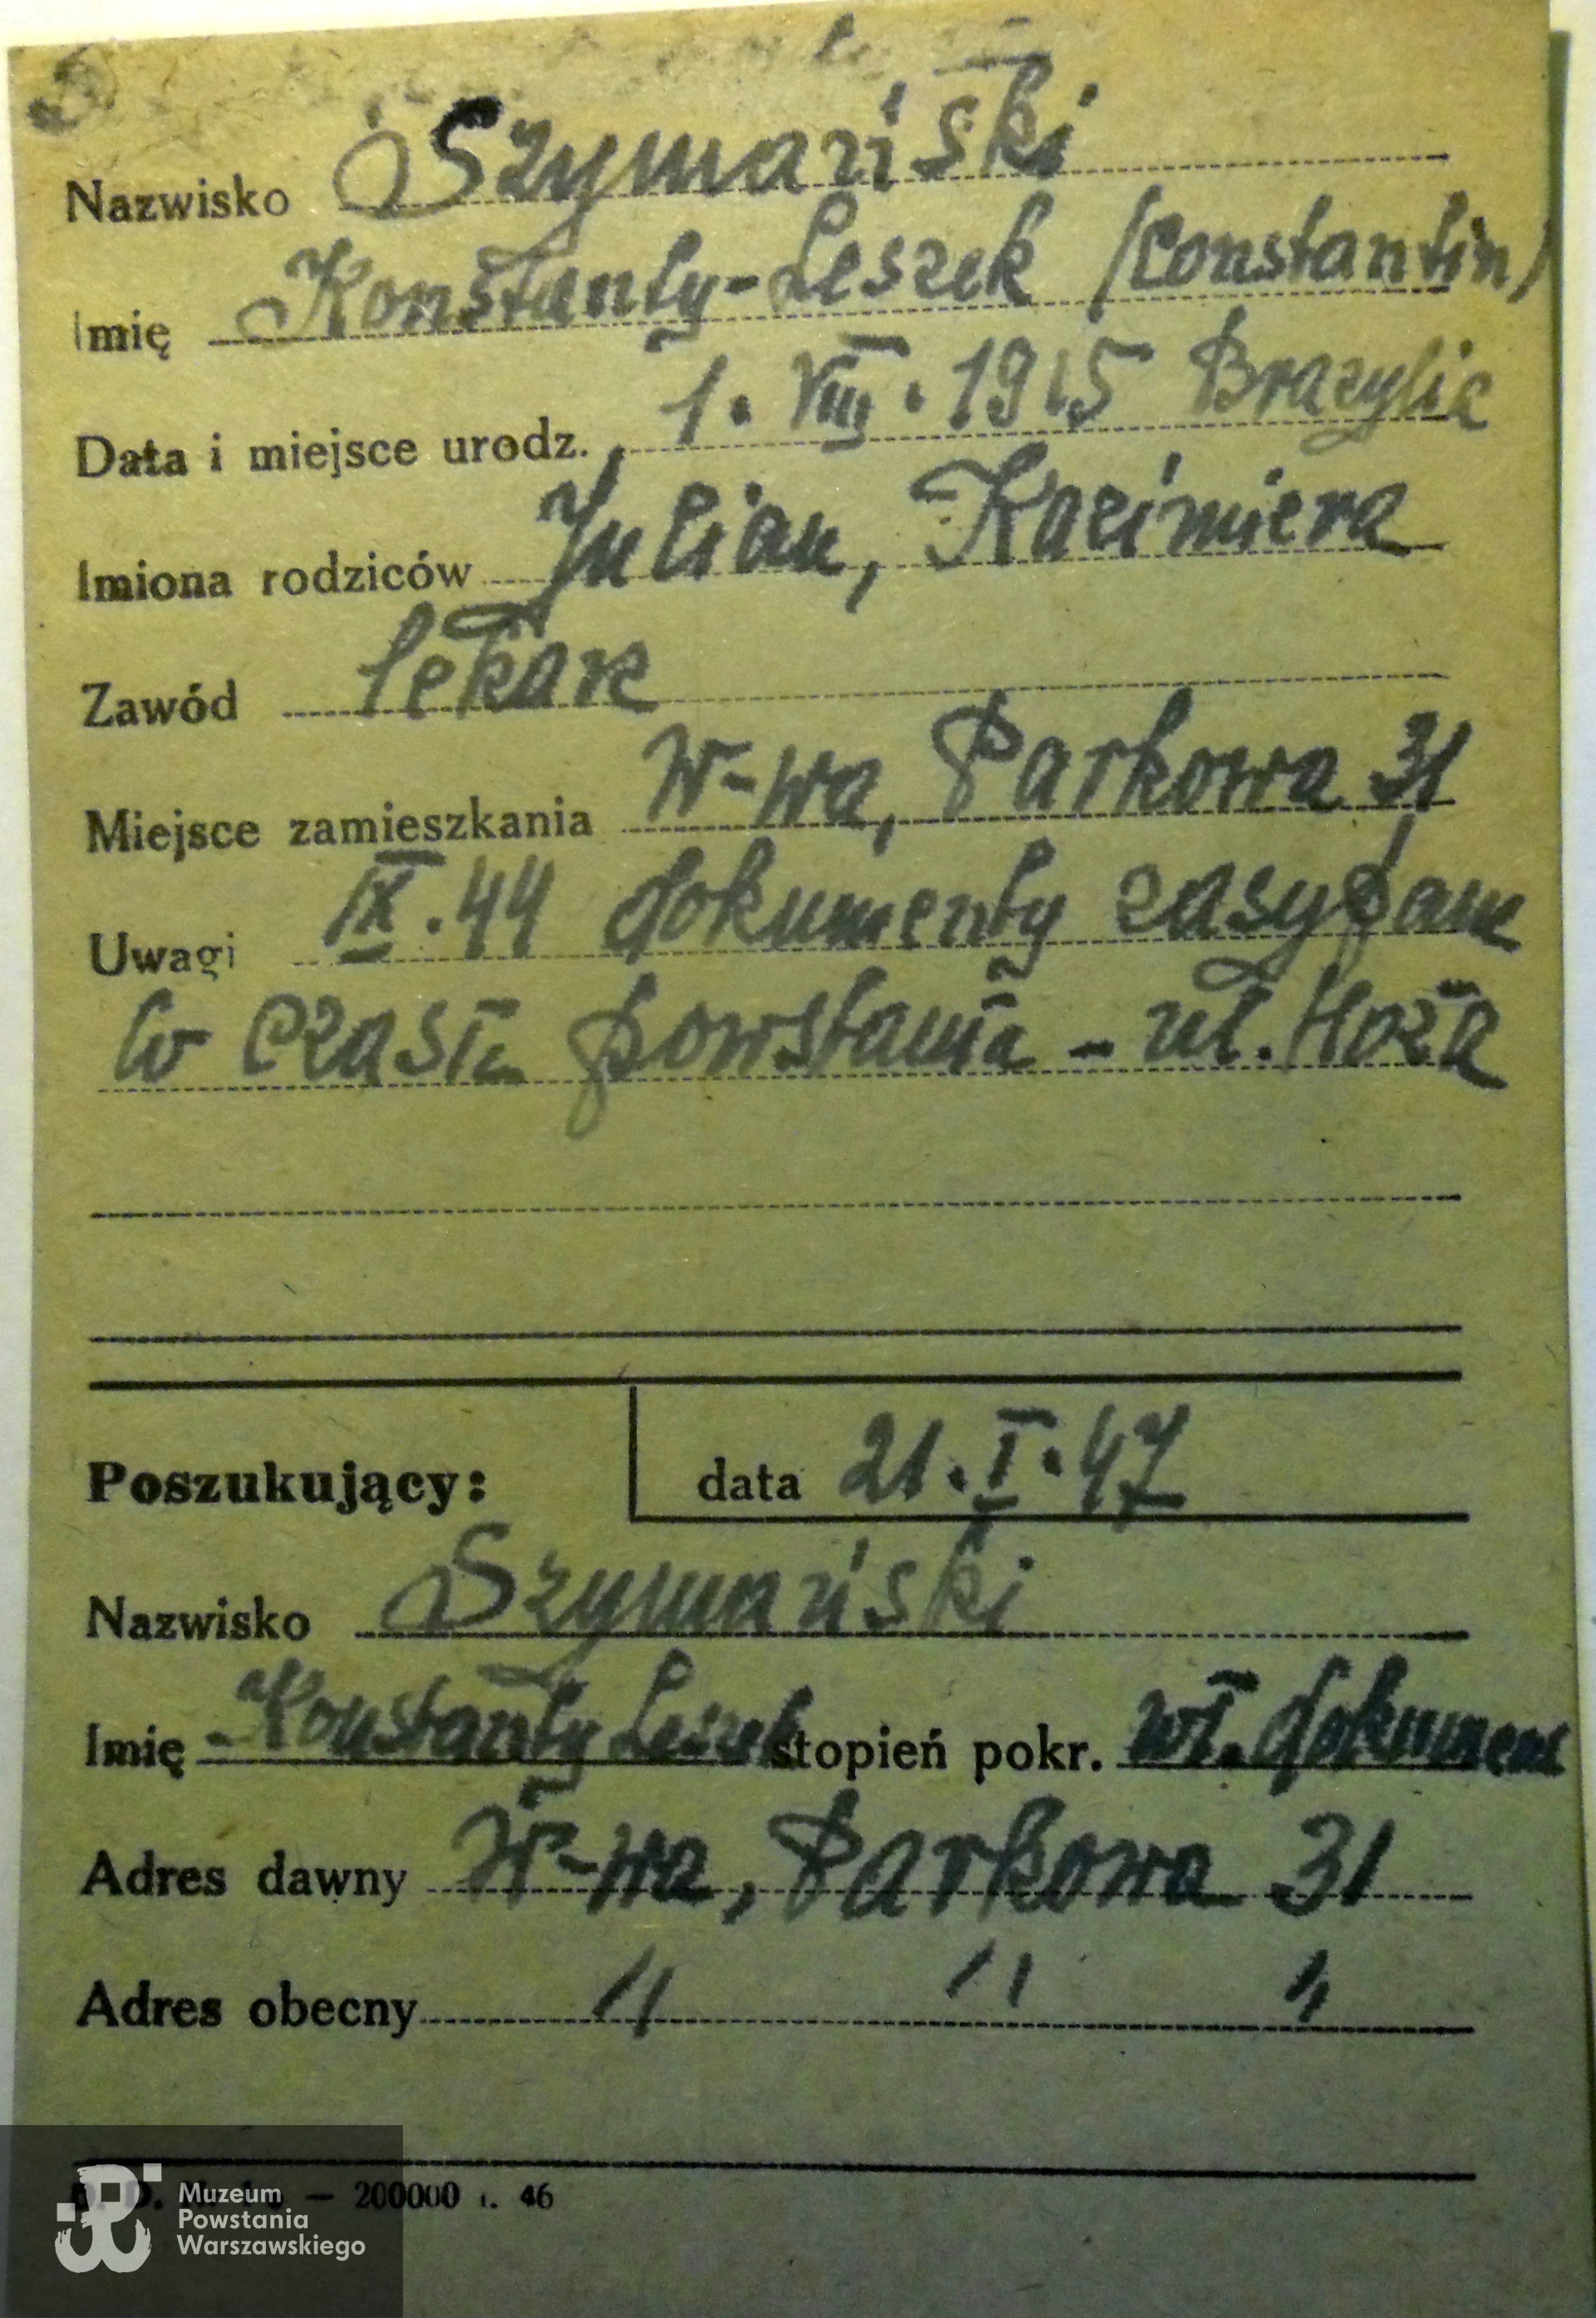 Nazwisko Szymański
Imię Konstanty-Leszek (Constantin)
Data i miejsce urodz. 1. VIII. 1915 Brazylia
Imiona rodziców Julian, Kazimiera
Zawód lekarz
Miejsce zamieszkania W-wa, Parkowa 31
Uwagi IX.44 dokumenty zasypane
w czasie powstania - ul. Hoża
Poszukujący: data 21.I.47
Nazwisko Szymański
Imię Konstanty Leszek stopień pokr. wł. dokument
Adres dawny W-wa, Parkowa 31
Adres obecny " " "
— 200000 46
Muzeum
Powstania
Warszawskiego